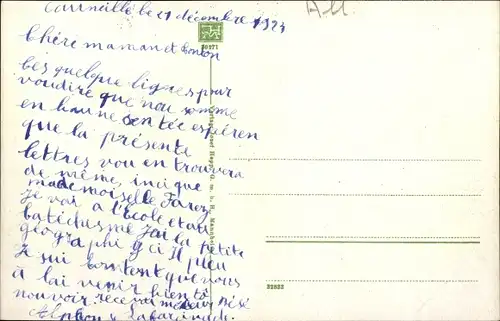 le 21 décembre 1923
Chère maman et tonton
Ces quelque lignes pour
voudire que nou somme
en bonne sentée espéren
que la présente
lettres vou en trouvera
de même, incique
mademoiselle Farez
Je vai a l'École et au
catéchisme J'ai la petite
géographi y ci Il pleu
Je sui contente que vous
a lai venir bien tô
nou voir recevai
Alphon
30171
Verlag Josef Hayn, G. m. b. H. Mannheim
32983